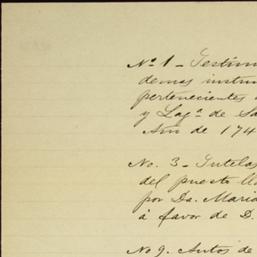 Nº 1 - Testim
demas instru
pertenecientes
y Lagª de Sa
Año de 174
No. 3 - Tutelas
del puesto
por Da. Maria
á favor de D.
No 9. Autos de